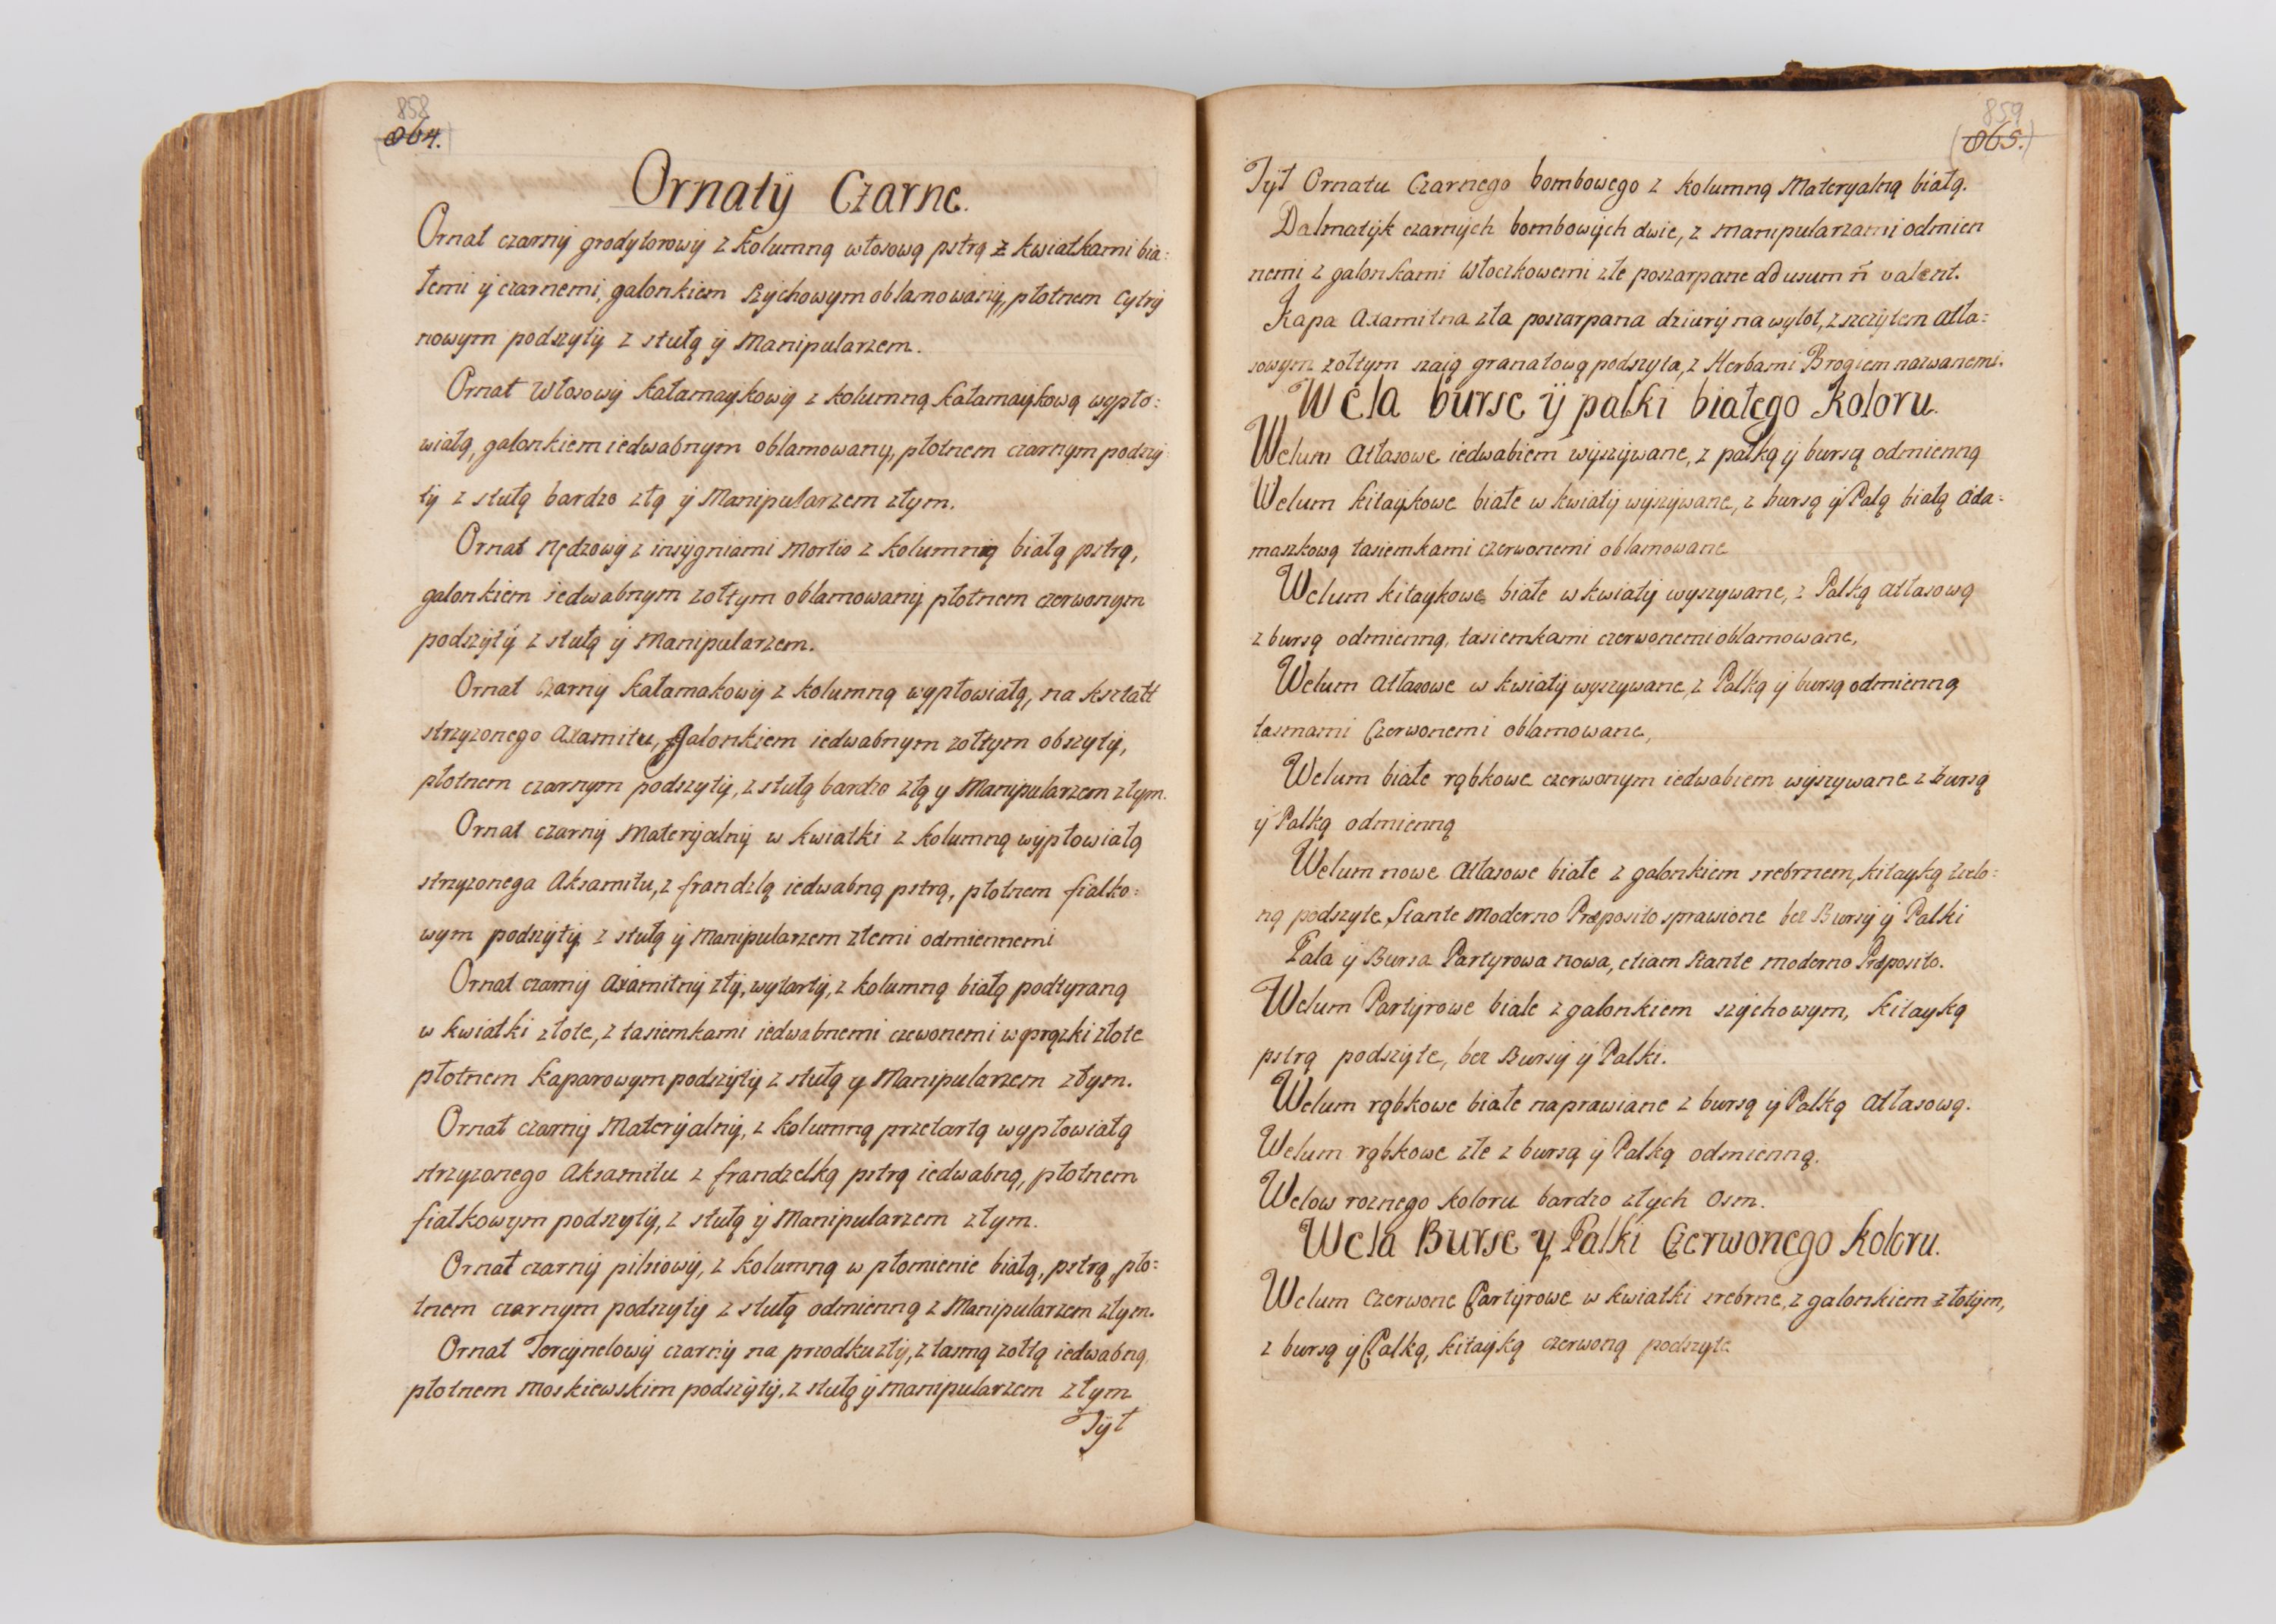 858
864.
Ornatÿ Czarne.
Ornat czarnÿ grodytorowÿ z kolumną włosową pstrą z kwiatkami bia:
łemi ÿ czarnemi, galonkiem szÿchowym oblamowanÿ, płotnem Cytrÿ
nowym podszytÿ z stułą ÿ Manipularzem.
Ornat Włosowÿ kałamaykowÿ z kolumną kałamaykową wypło:
wiałą, galonkiem iedwabnym oblamowany, płotnem czarnym podszÿ
tÿ z stułą bardzo złą ÿ Manipularzem złym.
Ornat nędzowÿ z insÿgniami Mortis z kolumnią białą pstrą,
galonkiem iedwabnym zołtym oblamowanÿ płotnem czerwonym
podszÿtÿ z stułą ÿ Manipularzem.
Ornat Czarnÿ kałamakowÿ z kolumną wypłowiałą, na kształt
strzyzonego Axamitu, galonkiem iedwabnym zołtym obszytÿ,
płotnem czarnym podszytÿ, z stułą bardzo złą y Manipularzem złym.
Ornat czarnÿ Materÿalnÿ w kwiatki z kolumną wÿpłowiałą
strzyzonega Aksamitu, z frandzlą iedwabną pstrą, płotnem fiałko:
wym podszÿtÿ z stułą ÿ Manipularzem złemi odmiennemi
Ornat czarnÿ Axamitnÿ złÿ, wytartÿ, z kolumną białą podtyraną
w kwiatki złote, z tasiemkami iedwabnemi czewonemi w prązki złote
płotnem kaparowym podszÿtÿ z stułą y Manipularzem złym.
Ornat czarnÿ Materÿalnÿ, z kolumną przetartą wypłowiałą
strzyzonego Aksamitu z frandzelką pstrą iedwabną, płotnem
fiałkowym podszytÿ, z stułą ÿ Manipularzem złym.
Ornat czarnÿ pilsiowÿ, z kolumną w płomienie białą, pstrą, pło:
tnem czarnym podszytÿ z stułą odmienną z Manipularzem złym.
Ornat Tercÿnelowÿ czarnÿ na przodku złÿ, z tasmą zołtą iedwabną
płotnem Moskiewskim podszÿtÿ, z stułą ÿ manipularzem złym
Tÿł
859
865.
Tÿł Ornatu Czarnego bombowego z kolumną Materyalną białą.
Dalmatÿk czarnÿch bombowÿch dwie, z manipularzami odmien
nemi z galonkami Włoczkowemi złe poszarpane ad usum ñ valent.
Kapa Axamitna zła poszarpana dziurÿ na wylot, z szczÿtem Atła:
sowym zołtym szaią granatową podszyta, z Herbami Brogiem nazwanemi.
Wela burse ÿ palki białego koloru.
Welum Atłasowe iedwabiem wyszÿwane, z pałką ÿ bursą odmienną
Welum kitaykowe białe w kwiatÿ wÿszÿwane, z bursą ÿ Palą białą Ada:
maszkową tasiemkami czerwonemi oblamowane
Welum kitaykowe białe w kwiatÿ wyszywane, z Palką atłasową
z bursą odmienną, tasiemkami czerwonemi oblamowane,
Welum Atłasowe w kwiatÿ wyszywane, z Palką ÿ bursą odmienną
tasmami Czerwonemi oblamowane,
Welum białe rąbkowe czerwonym iedwabiem wÿszywane z bursą
ÿ Palką odmienną
Welum nowe Atłasowe białe z galonkiem srebrnem, kitayką zielo:
ną podszyte, stante Moderno Præposito sprawione bez Bursÿ ÿ Palki
Pala ÿ Bursa Partyrowa nowa, etiam stante moderno Præposito.
Welum Partÿrowe białe z galonkiem szÿchowym, kitayką
pstrą podszÿte, bez Bursÿ ÿ Palki.
Welum rąbkowe białe naprawiane z bursą ÿ Palką Atłasową.
Welum rąbkowe złe z bursą ÿ Palką odmienną.
Welow roznego koloru bardzo złych Osm.
Wela Burse y Palki Czerwonego koloru.
Welum Czerwone Partÿrowe w kwiatki srebrne, z galonkiem złotÿm,
z bursą ÿ Palką, kitayką czerwoną podszyte